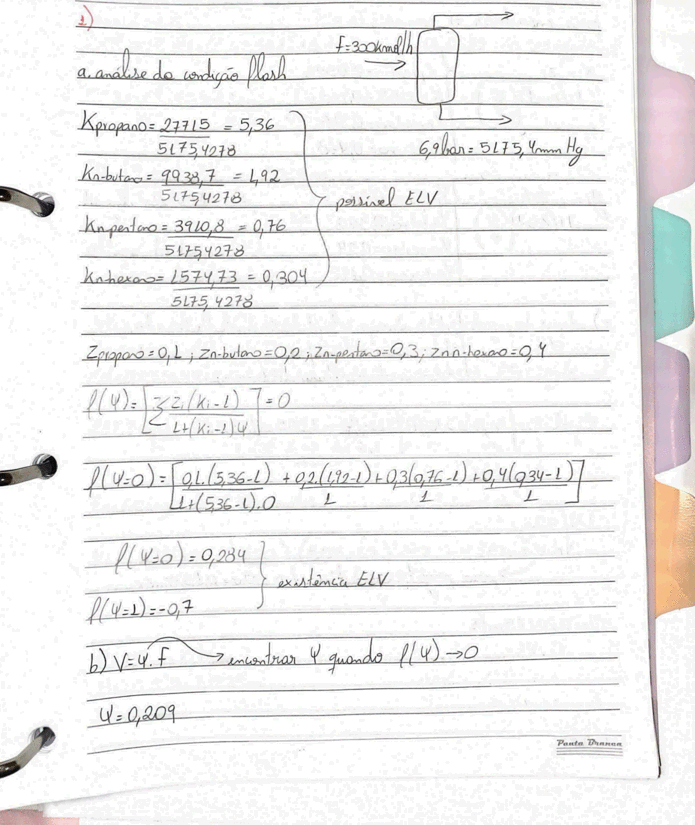 1)
F=300kmol/h
a. análise da condição flash
Kpropano= 27715 = 5,36
5175,4278
6,9bar= 5175,4mmHg
Kn-butano= 9938,7 = 1,92
5175,4278
possível ELV
Kn-pentano= 3910,8 = 0,76
5175,4278
Knhexano= 1574,73 = 0,304
5175,4278
Zpropano=0,1 ; Zn-butano=0,2 ; Zn-pentano=0,3 ; Znn-hexano=0,4
f(Ψ)=[Σ zi(Ki-1) ]=0
1+(Ki-1)Ψ
f(Ψ=0)=[0,1.(5,36-1) + 0,2.(1,92-1)+0,3(0,76-1)+0,4(0,34-1)]
1+(5,36-1).0 1 1 1
f(Ψ=0)=0,284
existência ELV
f(Ψ=1)=-0,7
b) V=Ψ.F → encontrar Ψ quando f(Ψ)→0
Ψ=0,209
Ponta Branca